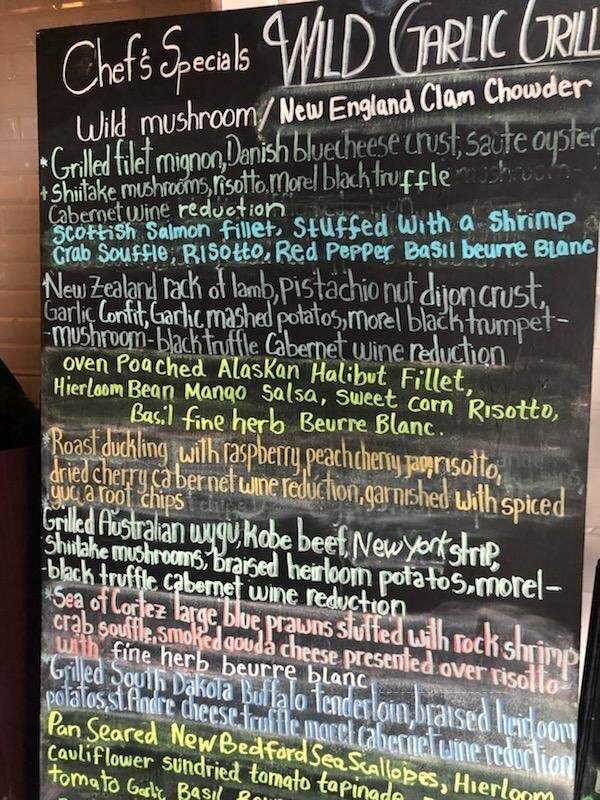 Chef's Specials WILD GARLIC GRILL
Wild mushroom/ New England Clam Chowder
*Grilled filet mignon, Danish bluecheese crust, saute oyster
+ Shiitake mushrooms, risotto, morel black truffle
Cabernet wine reduction
Scottish Salmon fillet, Stuffed with a Shrimp
Crab Souffle, Risotto, Red Pepper Basil beurre Blanc
New Zealand rack of lamb, pistachio nut dijon crust,
Garlic Confit, Garlic mashed potatos, morel black trumpet-
-mushroom-black truffle Cabernet wine reduction
oven Poached Alaskan Halibut Fillet,
Hierloom Bean Mango Salsa, Sweet Corn Risotto,
Basil fine herb Beurre Blanc.
*Roast duckling with raspberry peach cherry risotto,
dried cherry cabernet wine reduction, garnished with spiced
yuca root chips
Grilled Australian wygu, Kobe beef, New york strip,
Shiitake mushrooms, braised heirloom potatos, morel-
-black truffle cabernet wine reduction
*Sea of Cortez large blue prawns stuffed with rock shrimp
crab souffle, smoked gouda cheese presented over risotto
with fine herb beurre blanc
*Grilled South Dakota Buffalo tenderloin, braised heirloom
potatos, st. Andre cheese-truffle morel cabernet wine reduction
Pan Seared New Bedford Sea Scallopes, Hierloom
Cauliflower sundried tomato tapinade
tomato Garlic Basil